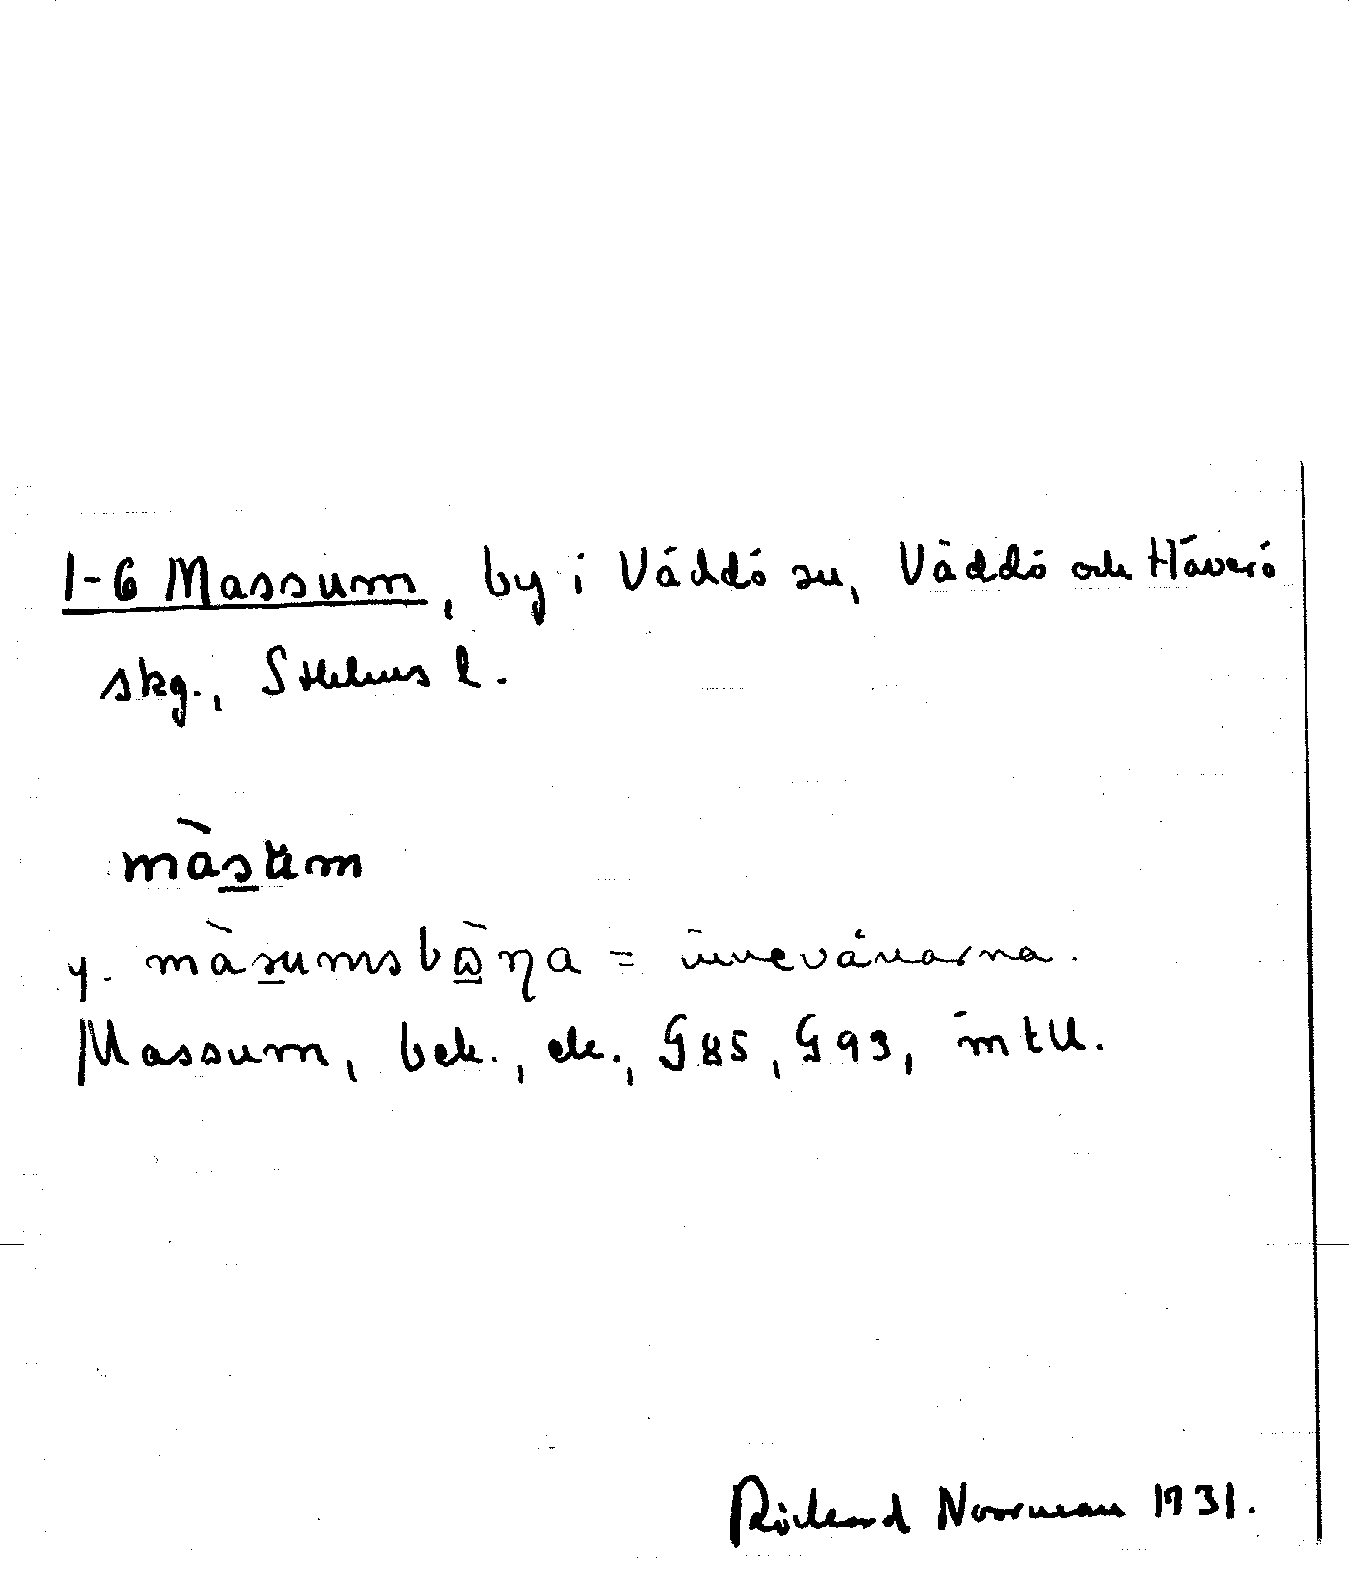 1-6 Massum, by i Väddö sn, Väddö och Häverö
skg., Sthlms l.
màsum
y. màsumsbɷ̀ŋa = innevånarna.
Massum, bek., ek., G85, G93, mtU.
Rickard Norrman 1931.